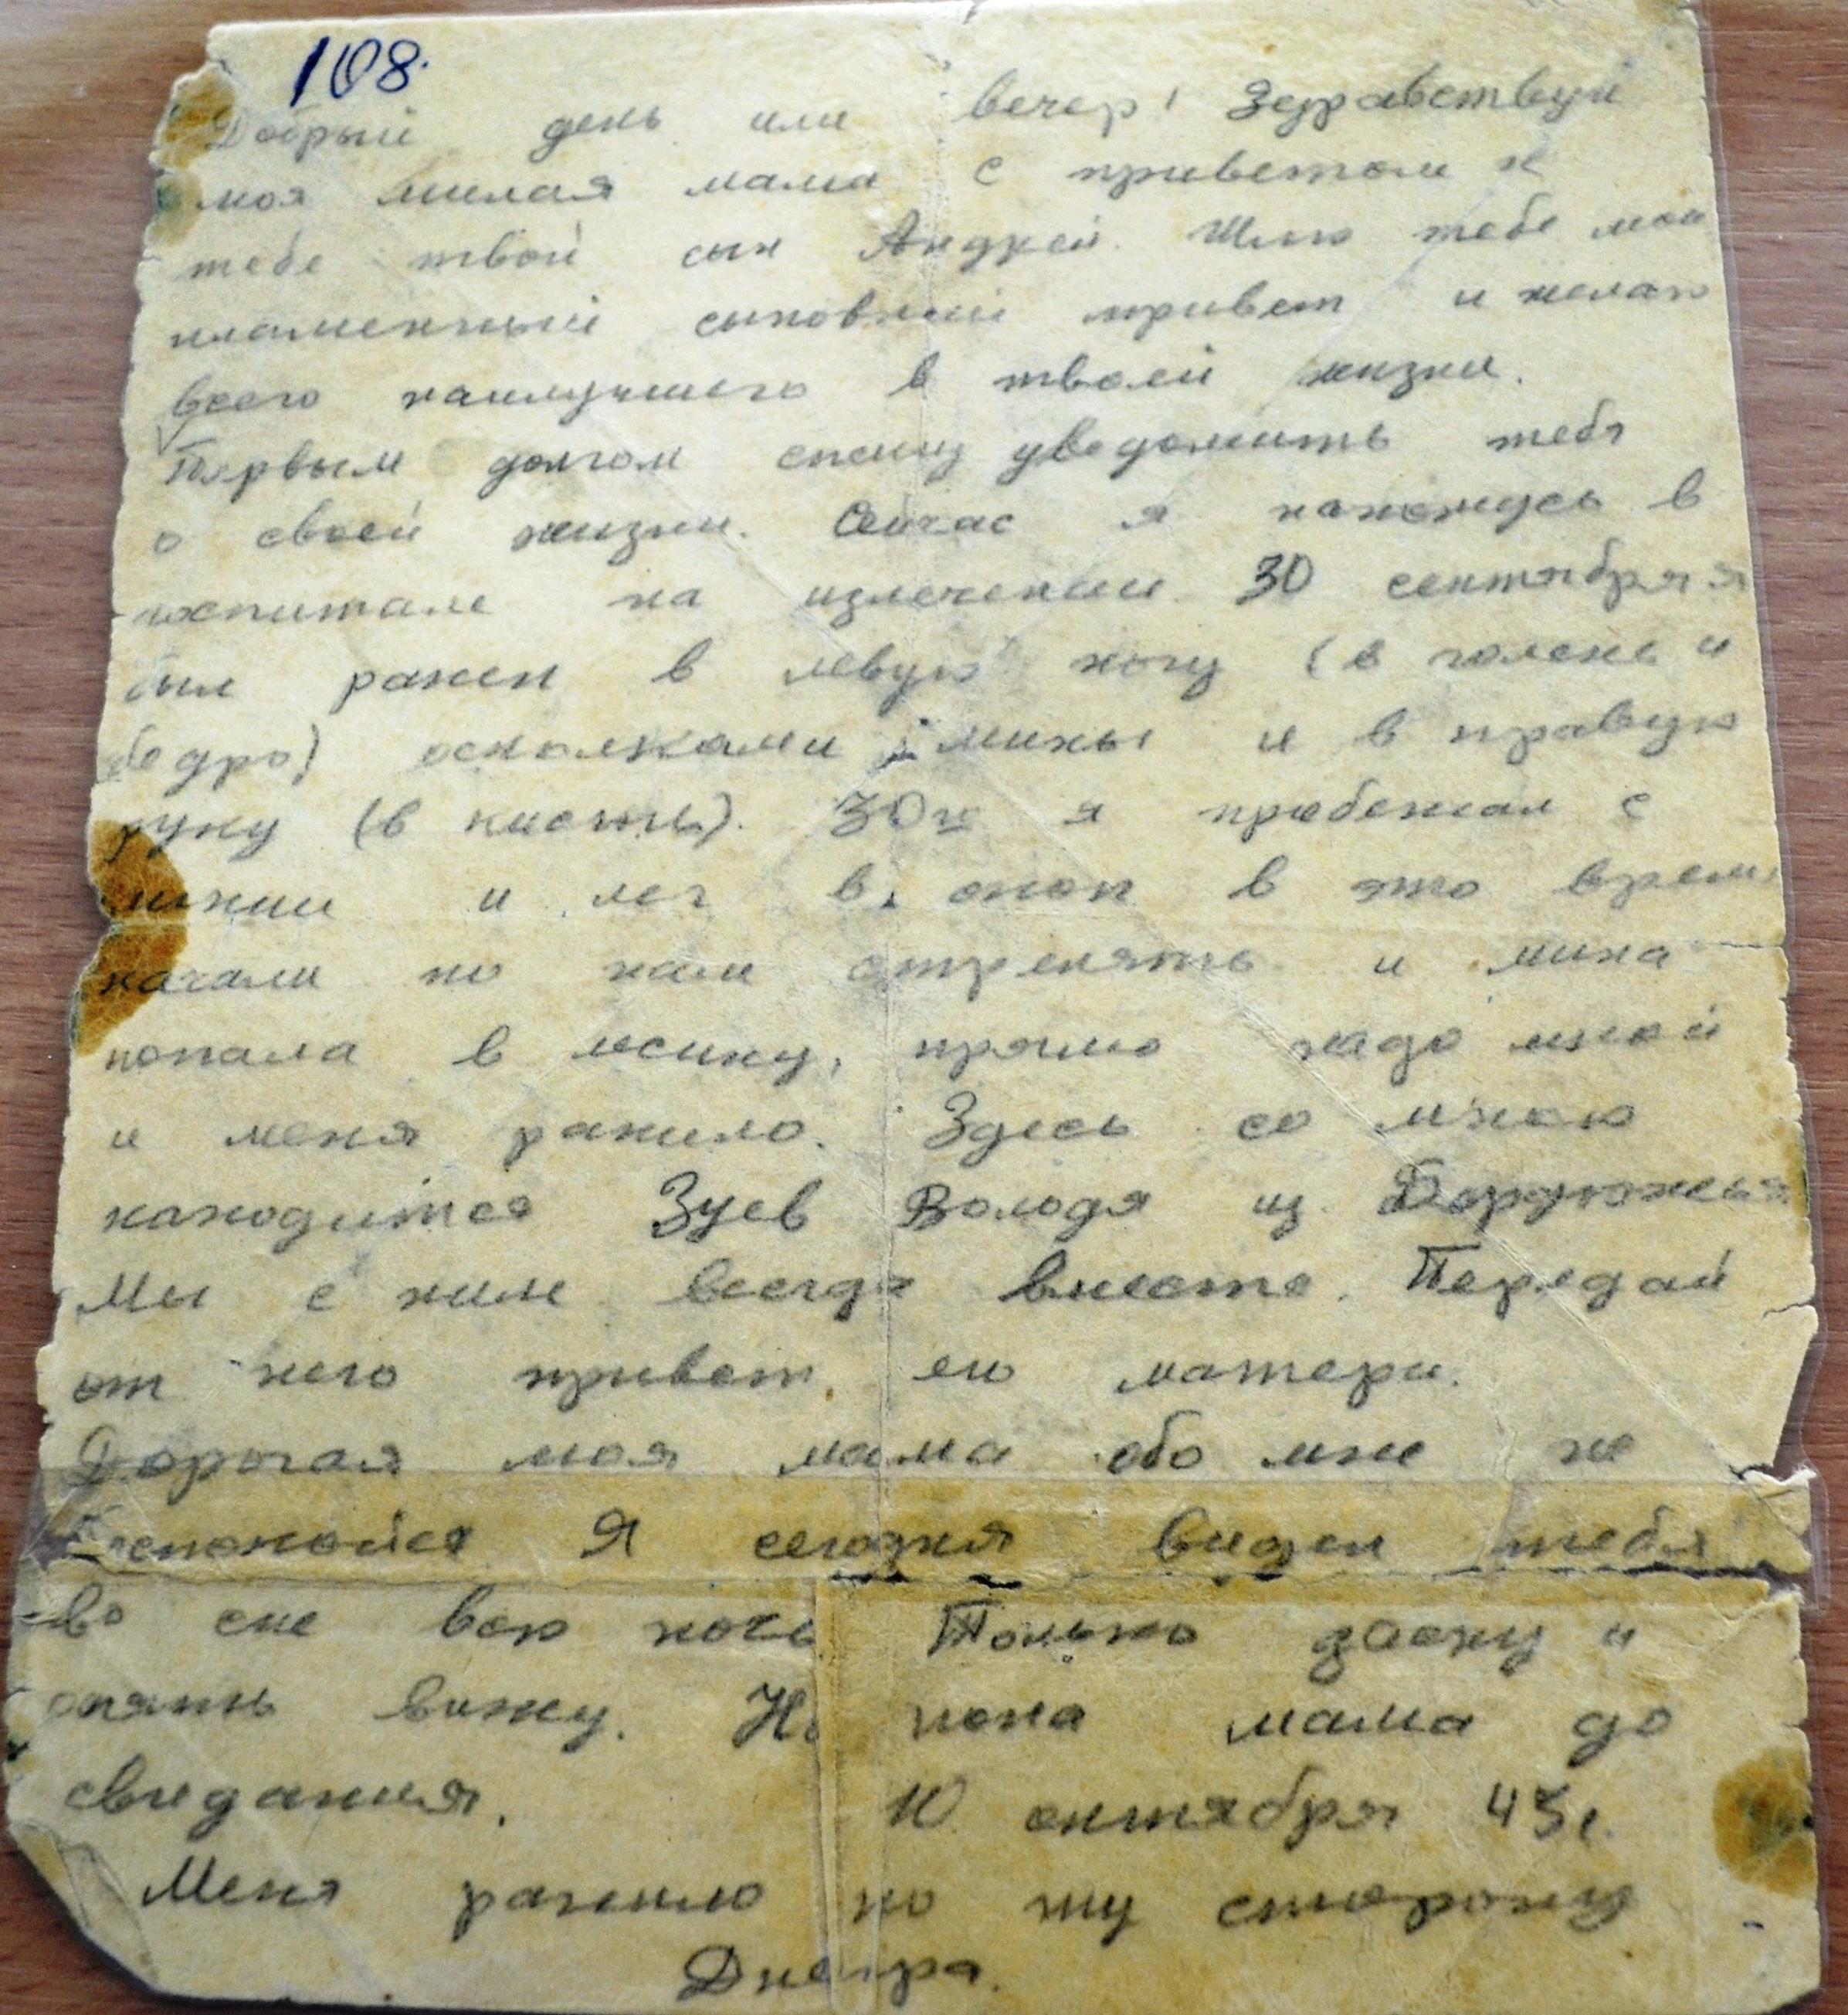 108.
Добрый день или вечер! Здравствуй
моя милая мама с приветом к
тебе твой сын Андрей. Шлю тебе мой
пламенный сыновний привет и желаю
всего наилучшего в твоей жизни.
Первым долгом спешу уведомить тебя
о своей жизни. Сейчас я нахожусь в
госпитале на излечении. 30 сентября я
был ранен в левую ногу (в голень и
бедро) осколками мины и в правую
руку (в кисть). 30го я прибежал с
линии и лег в окоп в это время
начали по нам стрелять и мина
попала в лесину, прямо надо мной
и меня ранило. Здесь со мною
находится Зуев Володя из
Мы с ним всегда вместе. Передай
от него привет его матери.
Дорогая моя мама обо мне не
беспокойся. Я сегодня видел тебя
во сне всю ночь Только засну и
опять вижу. Ну пока мама до
свидания. 10 октября 43г.
Меня ранило по ту сторону
Днепра.